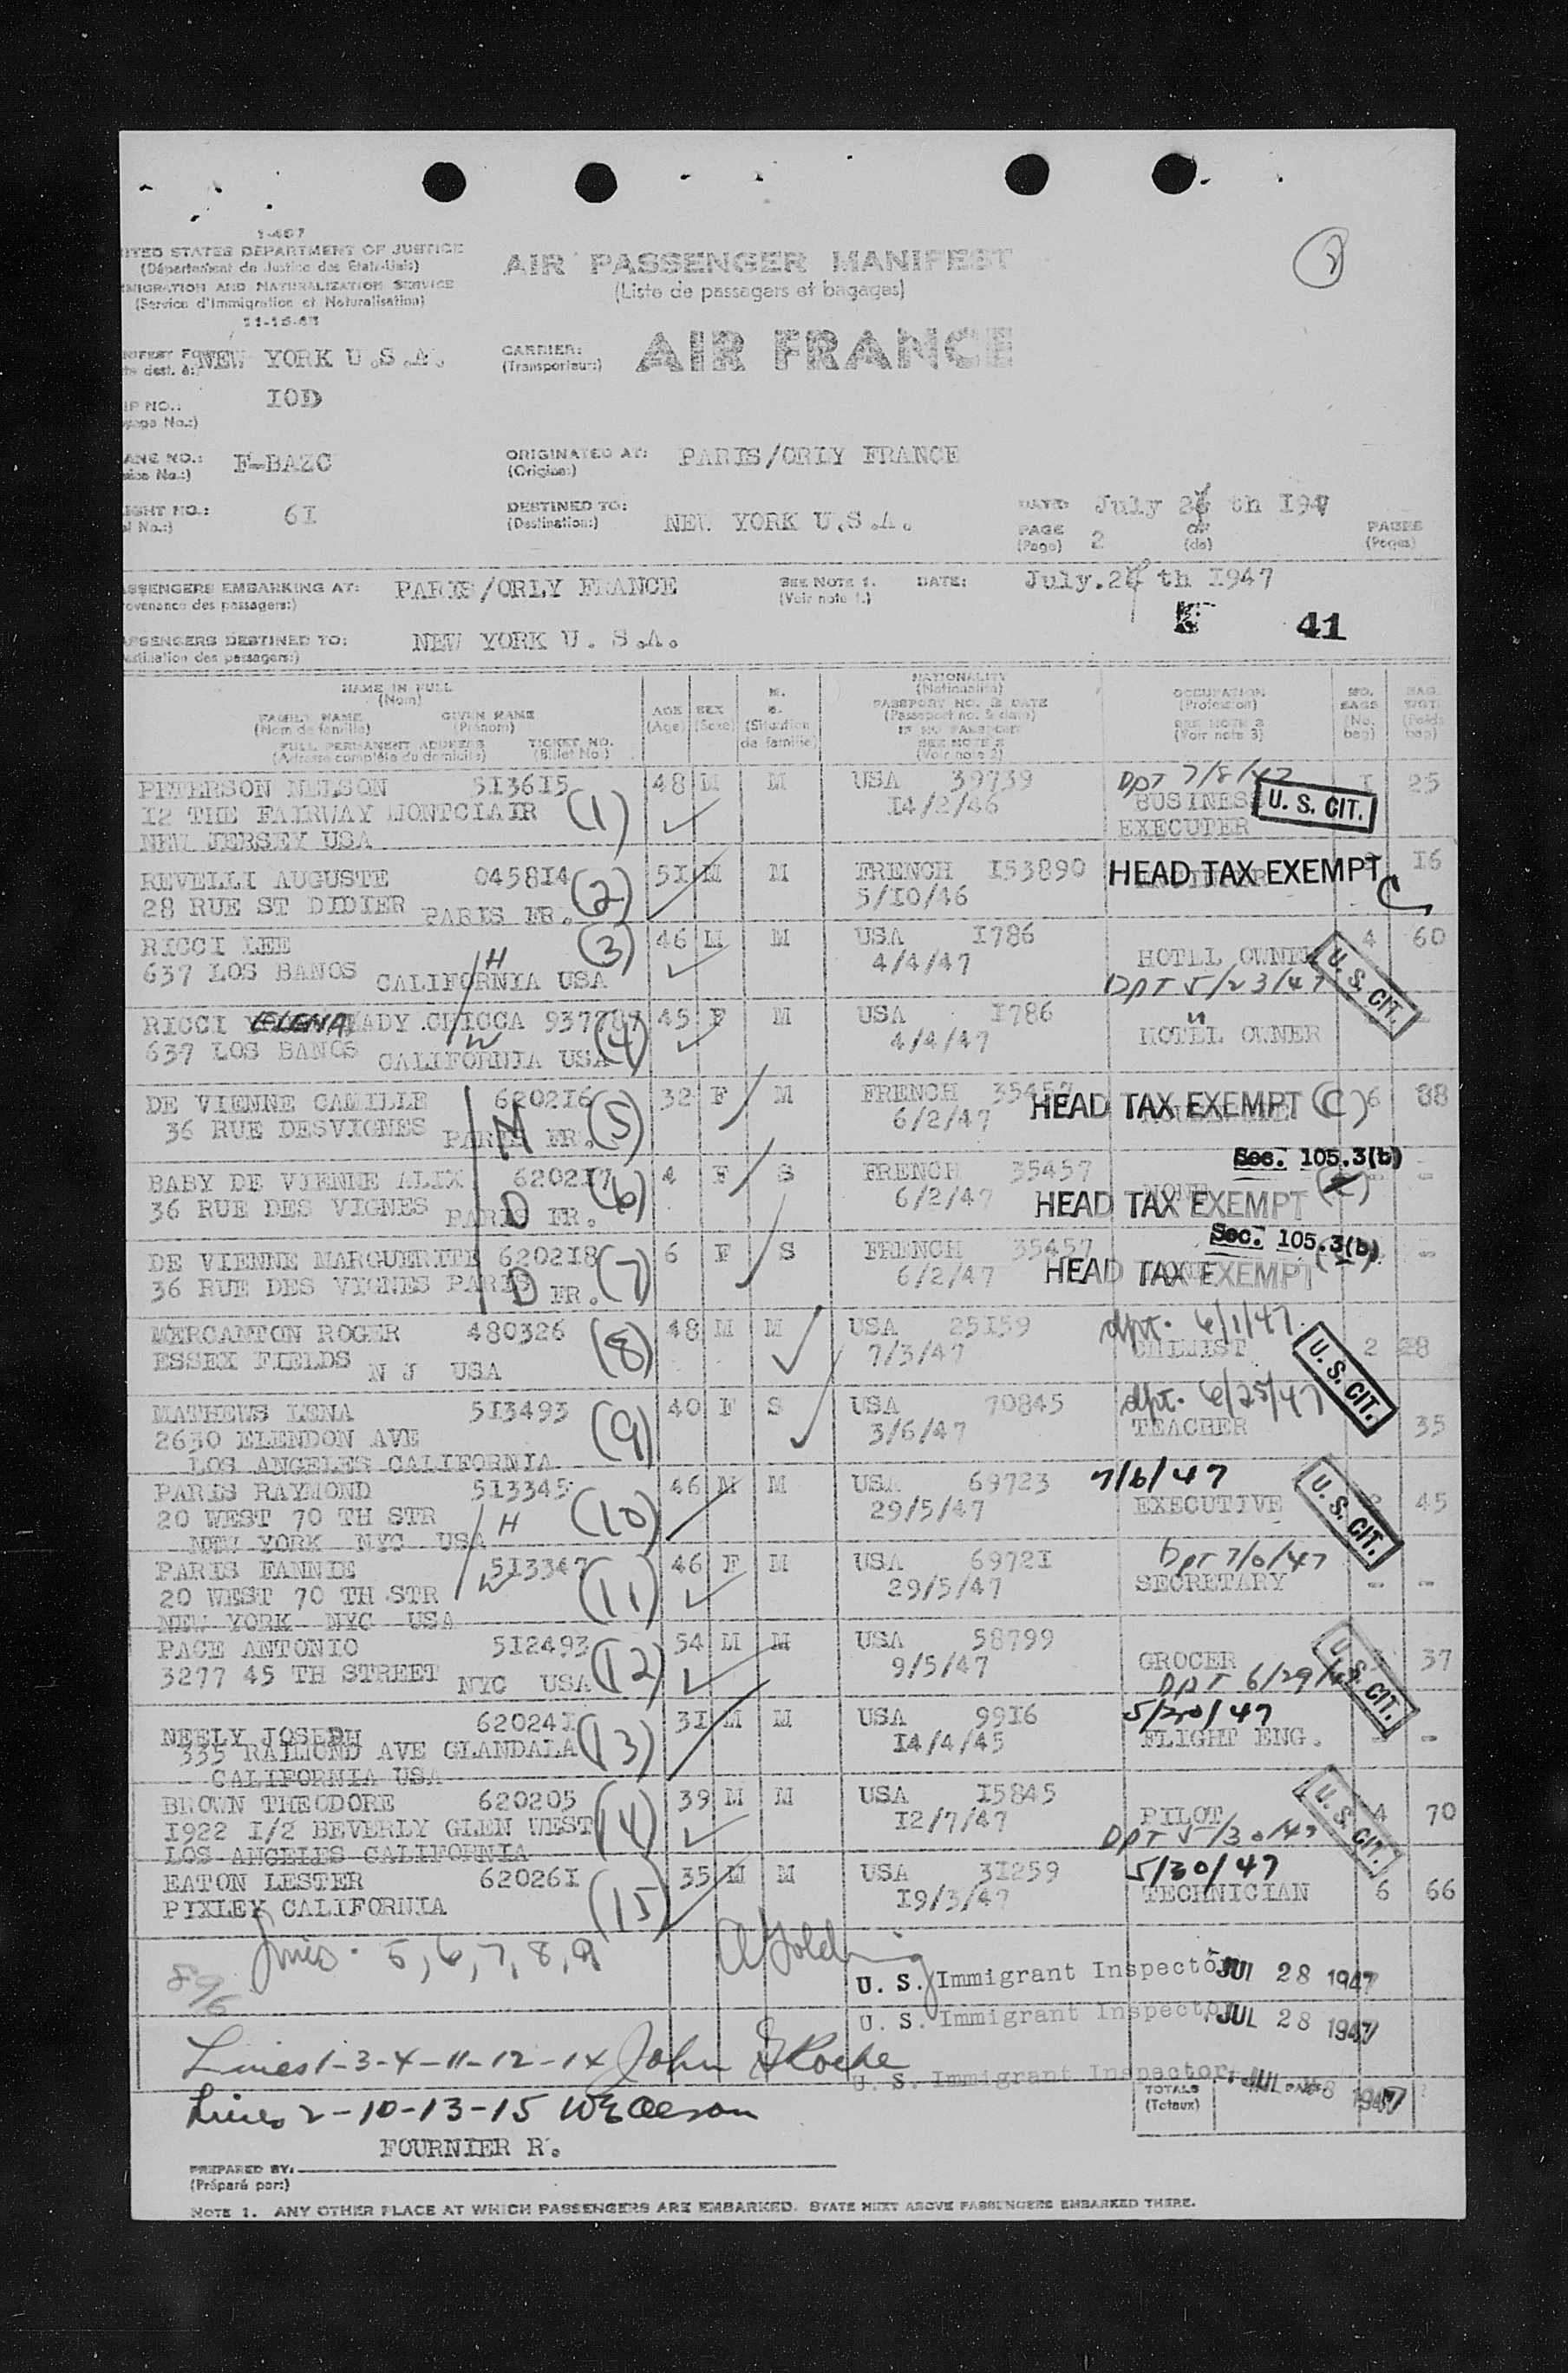 1-467
ITED STATES DEPARTMENT OF JUSTICE
(Département de Justice des Etats-Unis)
MIGRATION AND NATURALIZATION SERVICE
(Service d'Immigration et Naturalisation)
AIR PASSENGER MANIFEST
(Liste de passagers et bagages)
2
NEW YORK U.S.A.
CARRIER:
(Transporteur:)
AIR FRANCE
IP NO.:
IOD
ANE NO.:
F-BAZC
ORIGINATED AT:
(Origine:)
PARIS/ORLY FRANCE
IGHT NO.:
6I
DESTINED TO:
(Destination:)
NEW YORK U.S.A.
DATE: July 2 th I947
PAGE
(Page)
2
OF
(de)
PAGES
(Pages)
SSENGERS EMBARKING AT:
ovenance des passagers:)
PARIS/ORLY FRANCE
SEE NOTE 1.
(Voir note 1.)
DATE:
July.2 th I947
41
SSENGERS DESTINED TO:
stination des passagers:)
NEW YORK U. S.A.
NAME IN FULL
(Nom)
FAMILY NAME GIVEN NAME
(Nom de famille) (Prénom)
FULL PERMANENT ADDRESS TICKET NO.
(Adresse complète du domicile) (Billet No.)
AGE
(Age)
SEX
(Sexe)
(Situation
de famille)
NATIONALITY
(Nationalité)
PASSPORT NO. & DATE
(Passeport no. & date)
IF NO PASSPORT
SEE NOTE 2
(Voir note 2)
OCCUPATION
(Profession)
SEE NOTE 3
(Voir note 3)
NO.
BAGS
(No.
bag)
BAG.
WGT.
(Poids
bag)
PETERSON NELSON 5I36I5 (1) 48 M M USA 39739 DPT 7/8/47 I 25
I2 THE FAIRWAY MONTCLAIR I4/2/46 BUSINES U. S. CIT.
NEW JERSEY USA EXECUTER
REVELLI AUGUSTE 0458I4 (2) 5I M M FRENCH I53890 HEAD TAX EXEMPT C I6
28 RUE ST DIDIER PARIS FR. 5/I0/46
RICCI LEE (3) 46 M M USA I786 HOTEL OWNER 4 60
637 LOS BANOS CALIFORNIA USA H 4/4/47 DPT 5/23/47 U. S. CIT.
RICCI ELENA LADY CHICCA 937787 (4) 45 F M USA I786 "
637 LOS BANOS CALIFORNIA USA W 4/4/47 HOTEL OWNER
DE VIENNE CAMILLE 6202I6 (5) 32 F M FRENCH 35457 HEAD TAX EXEMPT (C) 6 88
36 RUE DESVIGNES PARIS FR. M 6/2/47
BABY DE VIENNE ALIX 6202I7 (6) 4 F S FRENCH 35457 Sec. 105.3(b) -
36 RUE DES VIGNES PARIS FR. D 6/2/47 NONE HEAD TAX EXEMPT
DE VIENNE MARGUERITE 6202I8 (7) 6 F S FRENCH 35457 Sec. 105.3(b) -
36 RUE DES VIGNES PARIS FR. D 6/2/47 HEAD TAX EXEMPT
MERCANTON ROGER 480326 (8) 48 M M USA 25I59 dpt. 6/1/47 2 28
ESSEX FIELDS N J USA 7/3/47 U. S. CIT.
MATHEWS LENA 5I3493 (9) 40 F S USA 70845 dpt. 6/25/47 35
2630 ELENDON AVE 3/6/47 TEACHER
LOS ANGELES CALIFORNIA
PARIS RAYMOND 5I3345 (10) 46 M M USA 69723 7/6/47 45
20 WEST 70 TH STR 29/5/47 EXECUTIVE U. S. CIT.
NEW YORK NYC USA H
PARIS FANNIE 5I3347 (11) 46 F M USA 6972I DPT 7/6/47
20 WEST 70 TH STR W 29/5/47 SECRETARY - -
NEW YORK NYC USA
PACE ANTONIO 5I2493 (12) 54 M M USA 58799 GROCER 37
3277 45 TH STREET NYC USA 9/5/47 DPT 6/29/47 U. S. CIT.
NEELY JOSEPH 62024I (13) 3I M M USA 99I6 5/30/47
335 RAIMOND AVE GLANDALA I4/4/45 FLIGHT ENG. - -
CALIFORNIA USA
BROWN THEODORE 620205 (14) 39 M M USA I5845 PILOT 4 70
I922 I/2 BEVERLY GLEN WEST I2/7/47 DPT 5/30/47 U. S. CIT.
LOS ANGELES CALIFORNIA
EATON LESTER 62026I (15) 35 M M USA 3I259 5/30/47
PIXLEY CALIFORNIA I9/3/47 TECHNICIAN 6 66
Lines. 5, 6, 7, 8, 9
U. S. Immigrant Inspector JUL 28 1947
U. S. Immigrant Inspector JUL 28 1947
Lines 1-3-4-11-12-14 John Roche
U. S. Immigrant Inspector JUL 28 1947
TOTALS
(Totaux)
Lines 2-10-13-15
FOURNIER R.
PREPARED BY:
(Préparé par:)
NOTE 1. ANY OTHER PLACE AT WHICH PASSENGERS ARE EMBARKED. STATE NEXT ABOVE PASSENGERS EMBARKED THERE.